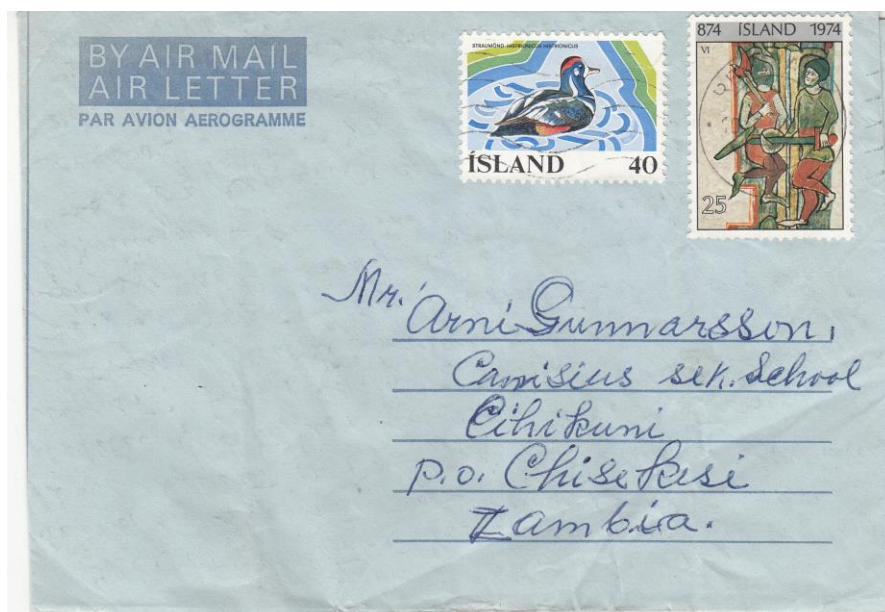 BY AIR MAIL
AIR LETTER
PAR AVION AEROGRAMME
STRAUMÖND-HISTRIONICUS HISTRIONICUS
ÍSLAND 40
874 ÍSLAND 1974
VI
25
Mr. Arni Gunnarsson,
Canisius sek. School
Cihikuni
P.O. Chisekesi
Zambia.